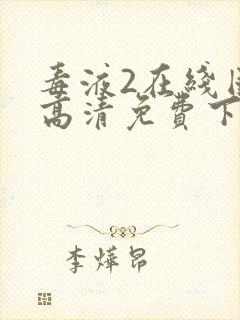 毒液2在线
高清免费下
李烨昂